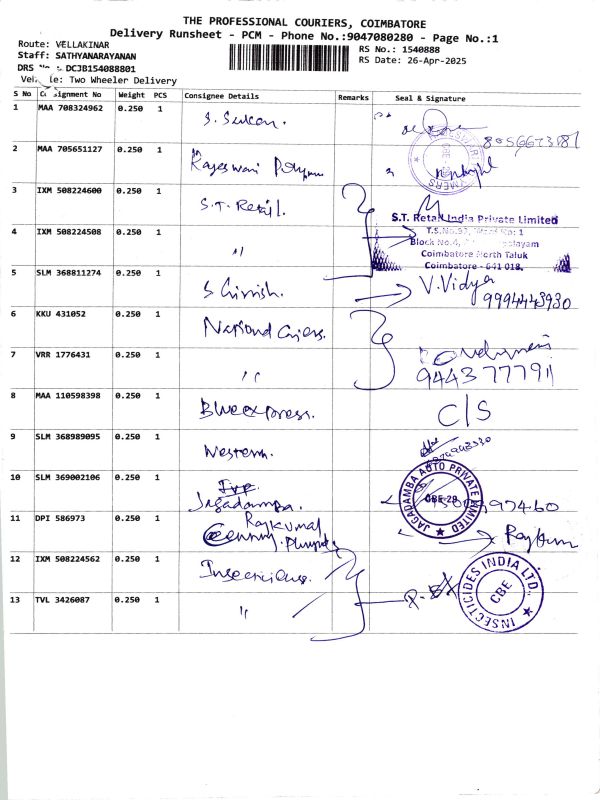 THE PROFESSIONAL COURIERS, COIMBATORE
Delivery Runsheet - PCM - Phone No.:9047080280 - Page No.:1
Route: VELLAKINAR
Staff: SATHYANARAYANAN
DRS No : DCJB154088801
Vehicle: Two Wheeler Delivery
RS No.: 1540888
RS Date: 26-Apr-2025
S No Consignment No Weight PCS Consignee Details Remarks Seal & Signature
1 MAA 708324962 0.250 1
2 MAA 705651127 0.250 1 Rajeswari
3 IXM 508224600 0.250 1 S.T. Retail.
S.T. Retail India Private Limited
T.S.No.
Block No.4,
Coimbatore North Taluk
Coimbatore - 641 018.
4 IXM 508224508 0.250 1 "
5 SLM 368811274 0.250 1 S Girish. V.Vidya
9994443930
6 KKU 431052 0.250 1 National
7 VRR 1776431 0.250 1 "
9443777791
8 MAA 110598398 0.250 1 Blue express. C/S
9 SLM 368989095 0.250 1 Western.
10 SLM 369002106 0.250 1 Jagadamba.
JAGADAMBA AUTO PRIVATE LIMITED
CBE-29
11 DPI 586973 0.250 1 Rajkumar
12 IXM 508224562 0.250 1 Insecticides.
INSECTICIDES INDIA LTD.,
CBE
13 TVL 3426087 0.250 1 "